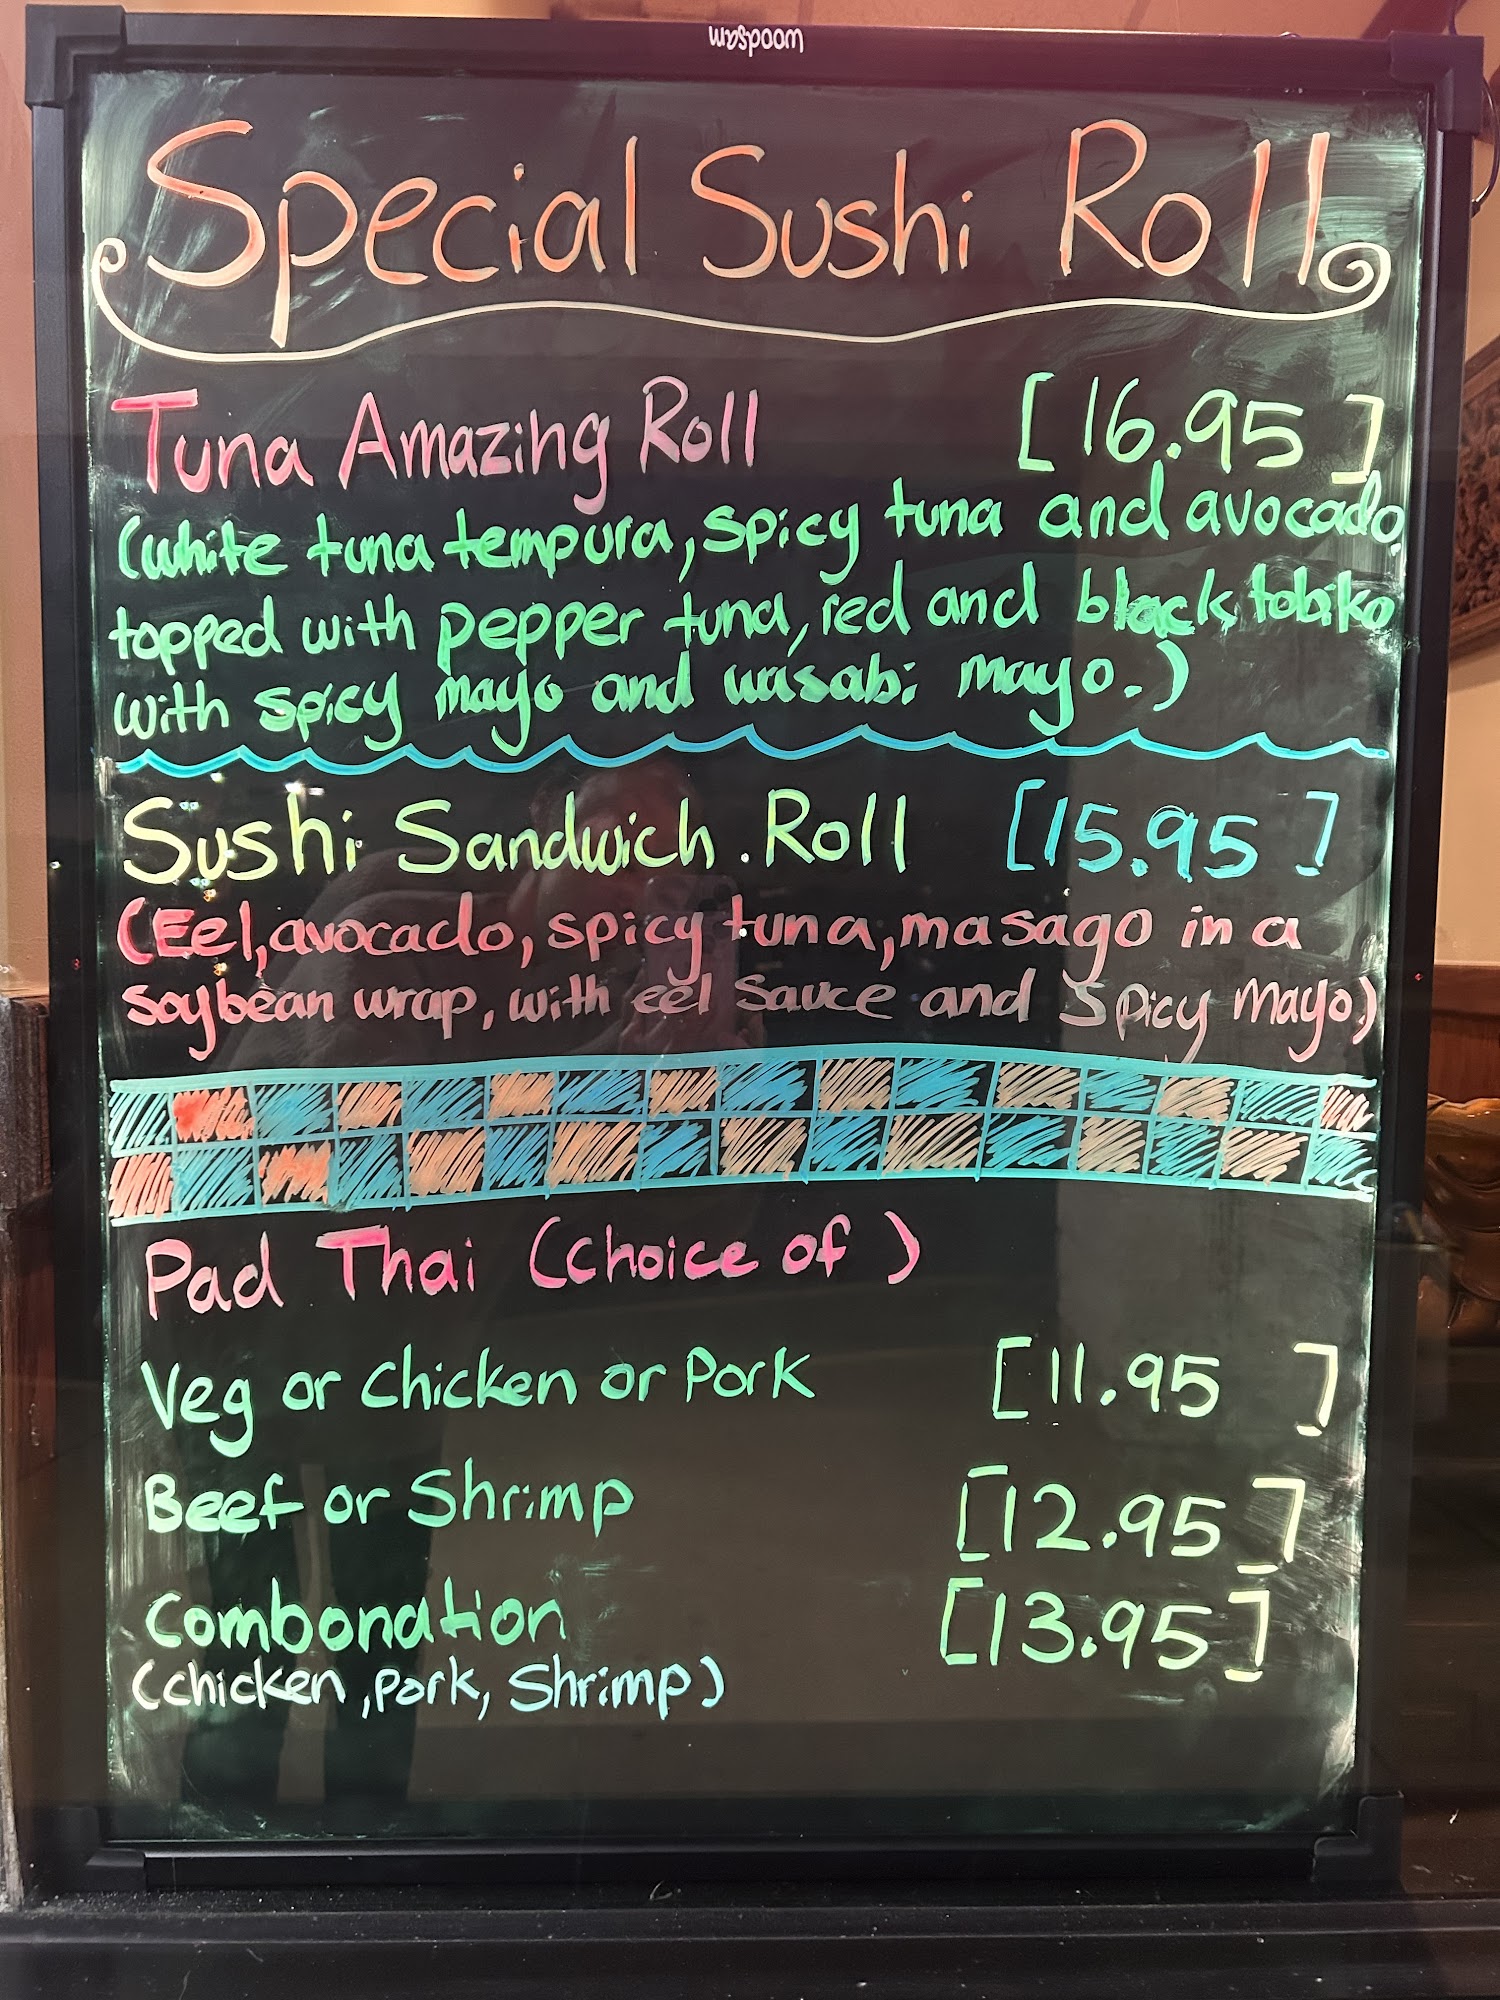 woodsam
Special Sushi Roll
Tuna Amazing Roll [16.95]
(white tuna tempura, spicy tuna and avocado,
topped with pepper tuna, red and black tobiko
with spicy mayo and wasabi mayo.)
Sushi Sandwich Roll [15.95]
(Eel, avocado, spicy tuna, masago in a
soybean wrap, with eel sauce and spicy mayo)
Pad Thai (choice of )
Veg or chicken or Pork [11.95 ]
Beef or Shrimp [12.95 ]
Combonation [13.95 ]
(chicken, Pork, Shrimp)